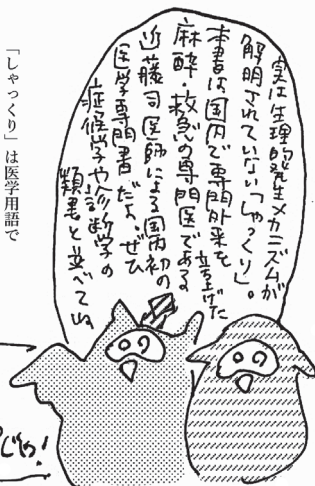 実は生理的発生メカニズムが
解明されていない「しゃっくり」。
本書は国内で専門外来を
立ち上げた
麻酔・救急の専門医である
近藤司医師による国内初の
医学専門書だよ。ぜひ
症候学や診断学の
類書と並べてね
「しゃっくり」は医学用語で